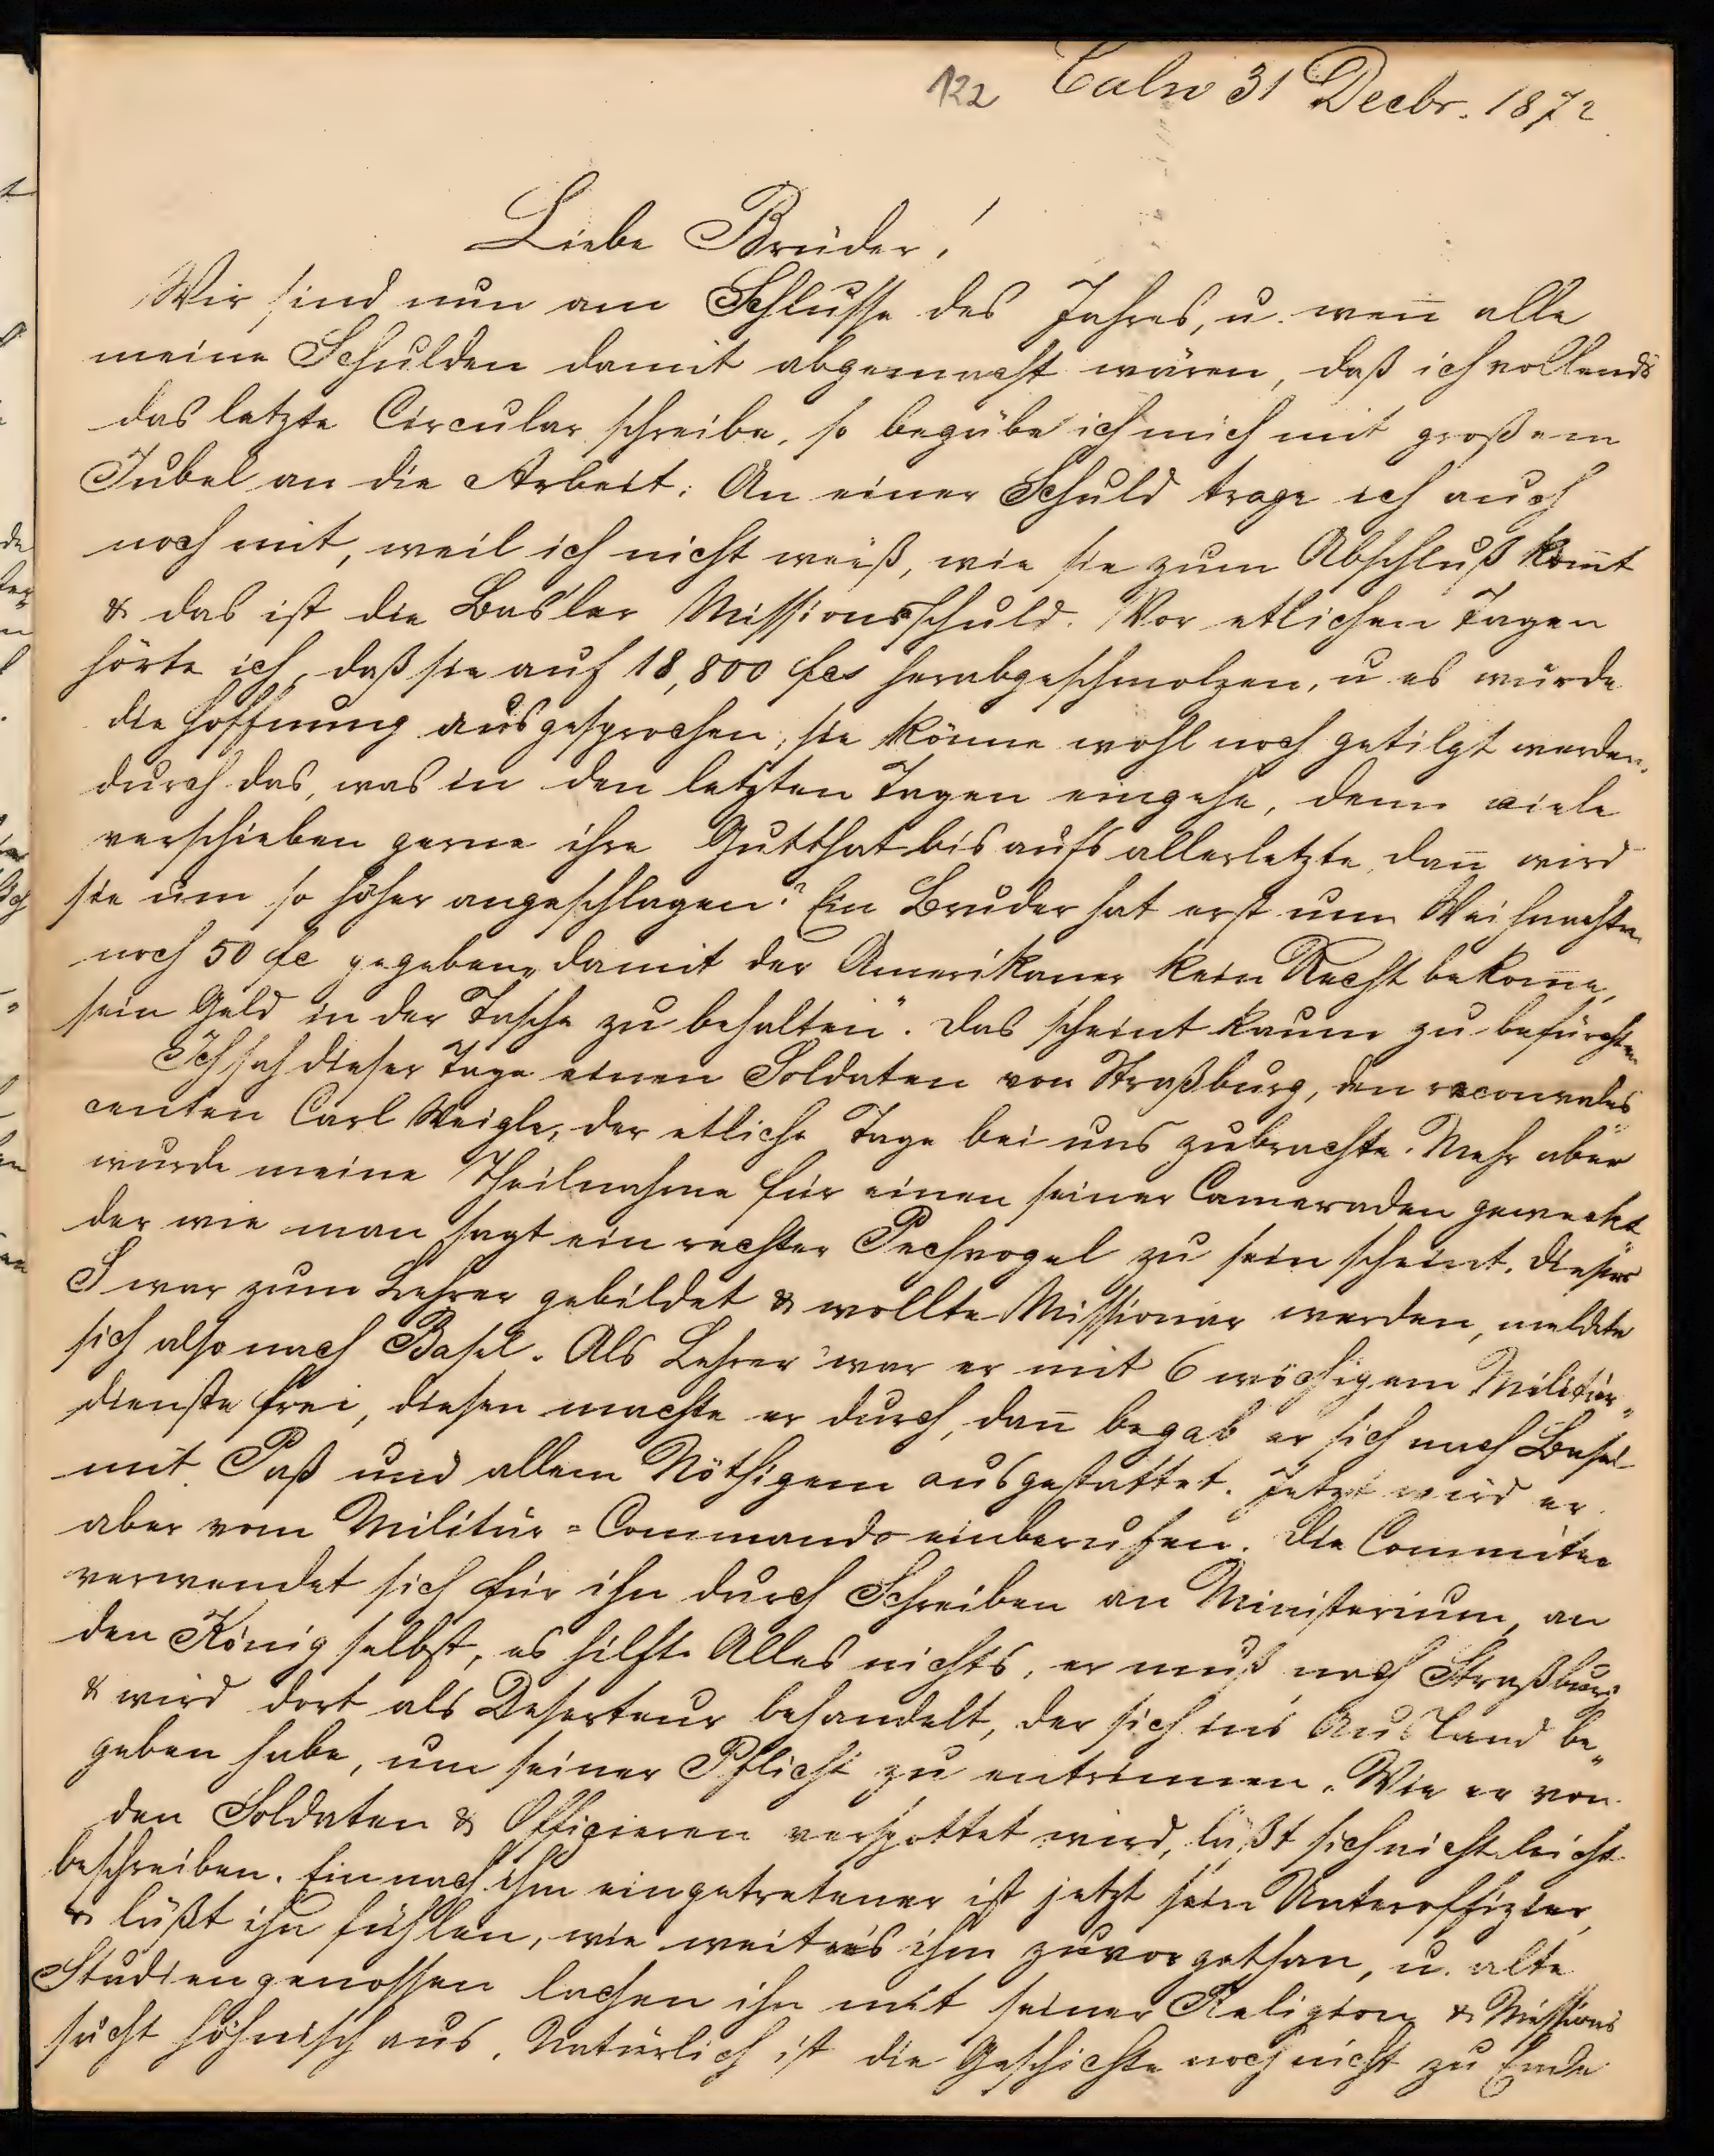 122 Calw 31 Decbr. 1872
Liebe Brüder!
Wir sind nun am Schlusse des Jahres, u. wen̄ alle
meine Schulden damit abgemacht wären, daß ich vollends
das letzte Circular schreibe, so begäbe ich mich mit großem
Jubel an die Arbeit. An einer Schuld trage ich auch
noch mit, weil ich nicht weiß, wie sie zum Abschluß kom̄t
& das ist die Basler Missionsschuld. Vor etlichen Tagen
hörte ich, daß sie auf 18,800 fcs herabgeschmolzen, u es wurde
die Hoffnung ausgesprochen, sie könne wohl noch getilgt werden
durch das, was in den letzten Tagen eingehe, denn viele
verschieben gerne ihre Gutthat bis aufs allerletzte, dan̄ wird
sie um so höher angeschlagen? Ein Bruder hat erst um Weihnachten
noch 50 fc gegeben „damit der Amerikaner kein Recht bekom̄e,
sein Geld in der Tasche zu behalten“. Das scheint kaum zu befürchten
Ich sah dieser Tage einen Soldaten von Straßburg, den reconvales„
centen Carl Weigle, der etliche Tage bei uns zubrachte. Mehr aber
wurde meine Theilnahme für einen seiner Cameraden geweckt
der wie man sagt ein rechter Pechvogel zu sein scheint. Dieser
S war zum Lehrer gebildet & wollte Missionar werden, meldete
sich also nach Basel. Als Lehrer war er mit 6 wöchigem Militär„
dienste frei, diesen machte er durch, dan̄ begab er sich nach Basel
mit Paß und allem Nöthigem ausgestattet. Jetzt wird er
aber vom Militär-Commando einberufen. Die Committee
verwendet sich für ihn durch Schreiben an Ministerium, an
den König selbst, es hilft Alles nichts, er muß nach Straßburg
& wird dort als Deserteur behandelt, der sich ins Ausland be„
geben habe, um seiner Pflicht zu entrinnen. Wie er von
den Soldaten & Offizieren verspottet wird, läßt sich nicht leicht
beschreiben. Ein nach ihm eingetretener ist jetzt sein Unteroffizier,
& läßt ihn fühlen, wie weit er's ihm zuvorgethan, u. alte
Studiengenossen lachen ihn mit seiner Religion & Missions
sucht höhnisch aus. Natürlich ist die Geschichte noch nicht zu Ende